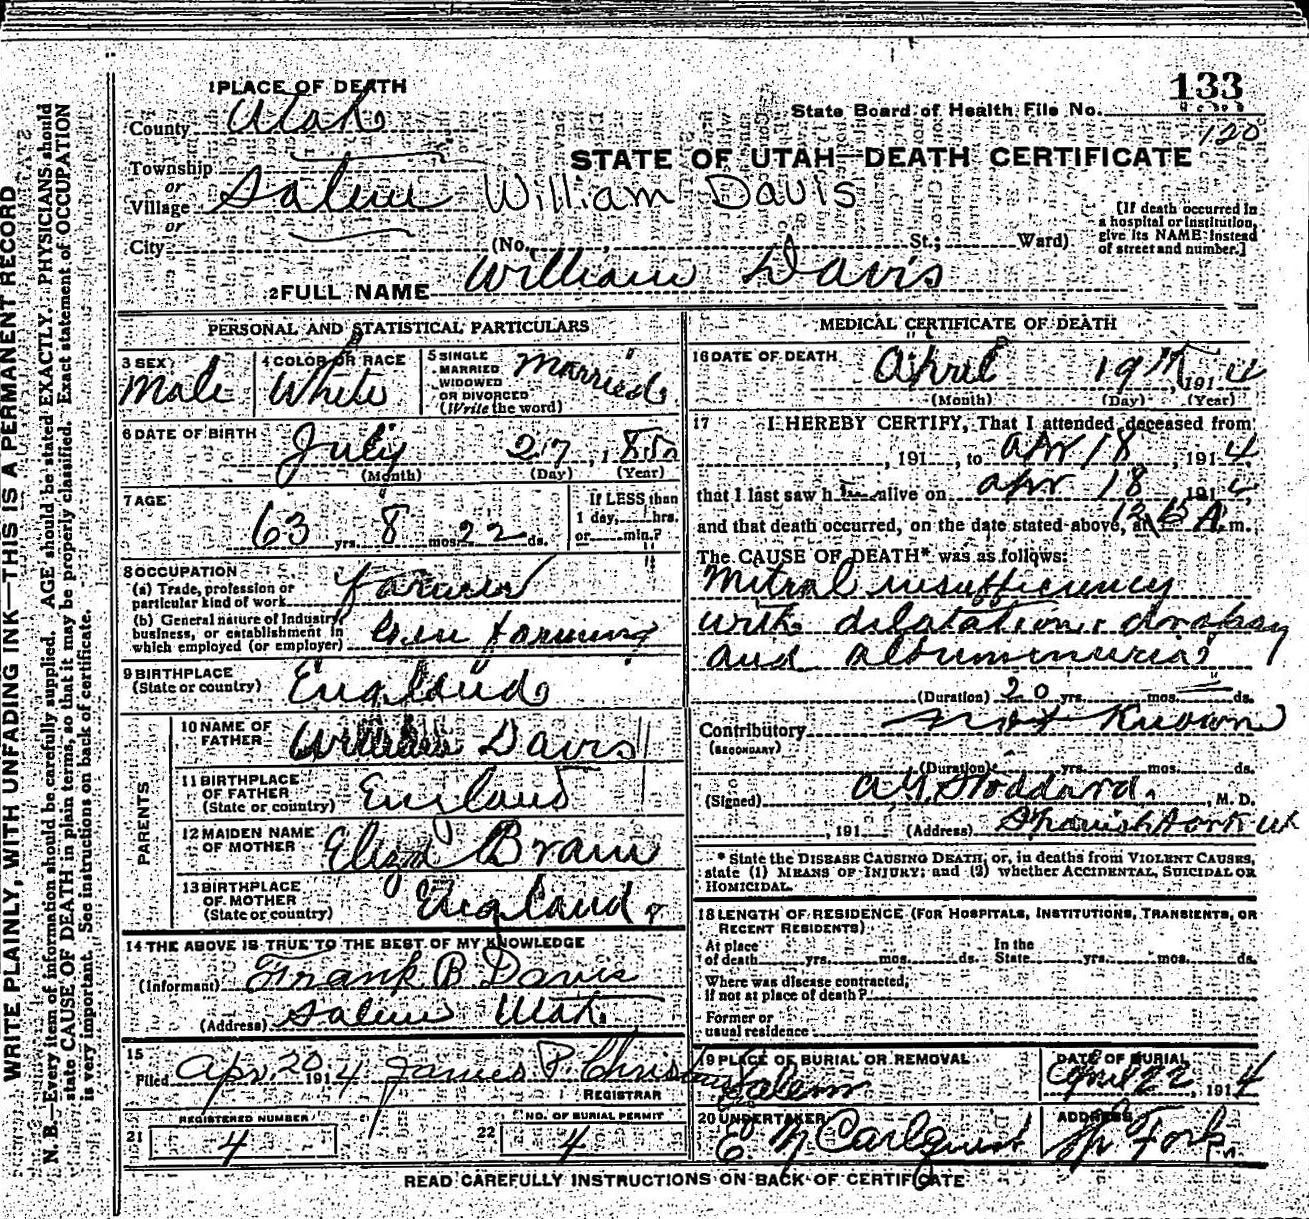 WRITE PLAINLY, WITH UNFADING INK—THIS IS A PERMANENT RECORD
N. B.—Every item of information should be carefully supplied. AGE should be stated EXACTLY. PHYSICIANS should
state CAUSE OF DEATH in plain terms, so that it may be properly classified. Exact statement of OCCUPATION
is very important. See instructions on back of certificate.
1 PLACE OF DEATH
133
County Utah
State Board of Health File No.
120
STATE OF UTAH—DEATH CERTIFICATE
Township
or
Village Salem
William Davis
or
City
(No. , St.; Ward)
[If death occurred in
a hospital or institution,
give its NAME instead
of street and number.]
2 FULL NAME William Davis
PERSONAL AND STATISTICAL PARTICULARS
3 SEX
Male
4 COLOR OR RACE
White
5 SINGLE
MARRIED
WIDOWED
OR DIVORCED
(Write the word)
Married
6 DATE OF BIRTH
July 27, 1850
(Month) (Day) (Year)
7 AGE
63 yrs. 8 mos. 22 ds.
If LESS than
1 day, hrs.
or min.?
8 OCCUPATION
(a) Trade, profession or
particular kind of work Farmer
(b) General nature of Industry,
business, or establishment in
which employed (or employer) Gen farming
9 BIRTHPLACE
(State or country) England
PARENTS
10 NAME OF
FATHER William Davis
11 BIRTHPLACE
OF FATHER
(State or country) England
12 MAIDEN NAME
OF MOTHER Eliza
13 BIRTHPLACE
OF MOTHER
(State or country) England
14 THE ABOVE IS TRUE TO THE BEST OF MY KNOWLEDGE
(Informant) Frank B. Davis
(Address) Salem Utah
15
Filed Apr. 20 1914 James P. Christensen
REGISTRAR
REGISTERED NUMBER
21 4
NO. OF BURIAL PERMIT
22 4
MEDICAL CERTIFICATE OF DEATH
16 DATE OF DEATH
April 19th, 1914
(Month) (Day) (Year)
17 I HEREBY CERTIFY, That I attended deceased from
, 191 , to Apr 18, 1914,
that I last saw him alive on Apr 18 1914
and that death occurred, on the date stated above, at A.m.
The CAUSE OF DEATH* was as follows:
Mitral insufficiency
with dilatation, dropsy
and albumenuria
(Duration) 20 yrs. mos. ds.
Contributory not Known
(SECONDARY)
(Duration) yrs. mos. ds.
(Signed) Stoddard. , M. D.
, 191 (Address) Spanish Fork Ut
* State the DISEASE CAUSING DEATH, or, in deaths from VIOLENT CAUSES,
state (1) MEANS OF INJURY; and (2) whether ACCIDENTAL, SUICIDAL OR
HOMICIDAL.
18 LENGTH OF RESIDENCE (FOR HOSPITALS, INSTITUTIONS, TRANSIENTS, OR
RECENT RESIDENTS)
At place
of death yrs. mos. ds.
In the
State yrs. mos. ds.
Where was disease contracted,
if not at place of death?
Former or
usual residence
19 PLACE OF BURIAL OR REMOVAL
Salem
DATE OF BURIAL
April 22, 1914
20 UNDERTAKER
Carlquist
ADDRESS
Sp Fork
READ CAREFULLY INSTRUCTIONS ON BACK OF CERTIFICATE